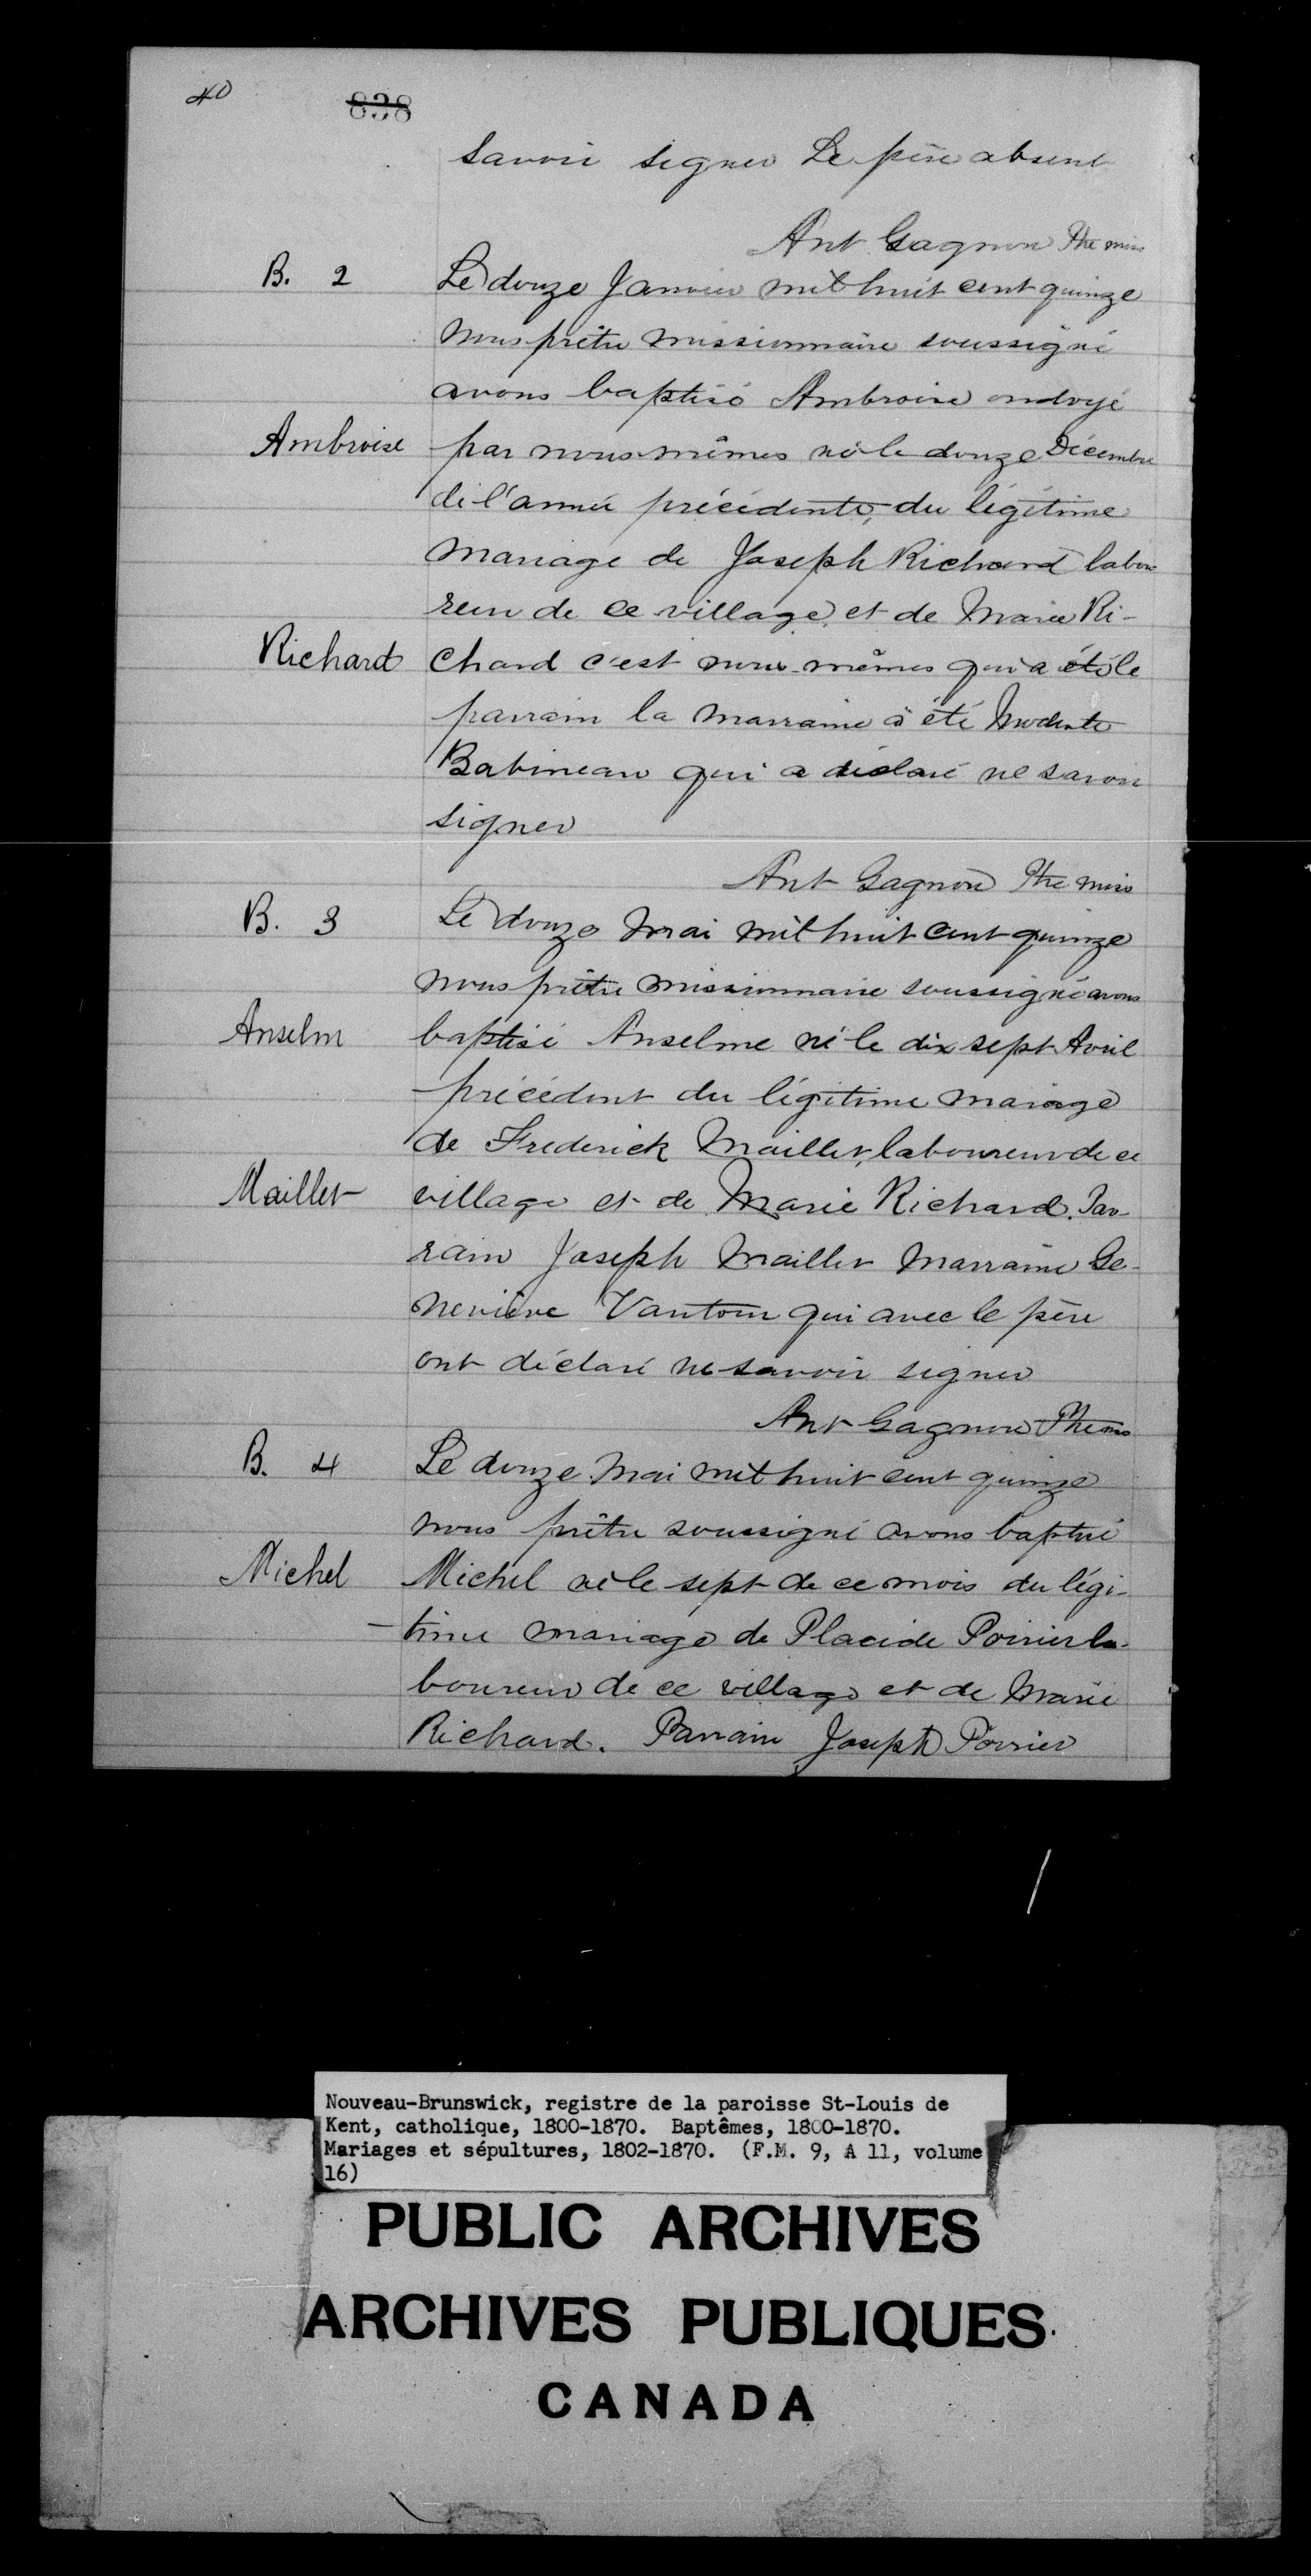 40
838
Savoir signer Le père absent
Ant Gagnon Ptre miss
B. 2 Le douze Janvier mil huit cent quinze
nous prêtre missionnaire soussigné
avons baptisé Ambroise ondoyé
Ambroise par nous-mêmes né le douze Décembre
de l'année précédente, du légitime
mariage de Joseph Richard labou-
reur de ce village, et de Marie Ri-
Richard chard c'est nous-mêmes qui a été le
parrain la marraine a été Modeste
Babineau qui a déclaré ne savoir
signer
Ant Gagnon Ptre miss
B. 3 Le douze Mai mil huit cent quinze
nous prêtre missionnaire soussigné avons
Anselm baptisé Anselme né le dix sept Avril
précédent du légitime mariage
de Frederick Maillet, laboureur de ce
Maillet village et de Marie Richard. Par-
rain Joseph Maillet Marraine Ge-
neviève Vautour qui avec le père
ont déclaré ne savoir signer
Ant Gagnon Ptre miss
B. 4 Le douze Mai mil huit cent quinze
nous prêtre soussigné avons baptisé
Michel Michel né le sept de ce mois du légi-
time mariage de Placide Poirier la-
boureur de ce village et de Marie
Richard. Parrain Joseph Poirier
Nouveau-Brunswick, registre de la paroisse St-Louis de
Kent, catholique, 1800-1870. Baptêmes, 1800-1870.
Mariages et sépultures, 1802-1870. (F.M. 9, A 11, volume
16)
PUBLIC ARCHIVES
ARCHIVES PUBLIQUES
CANADA